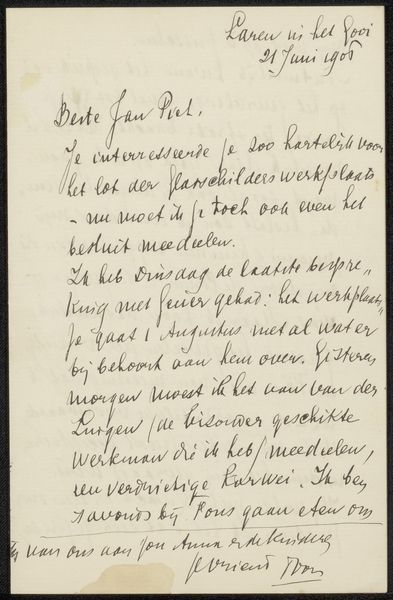 Laren in het Gooi
21 Juni 1905
Beste Jan Piet.
Je interresseerde je zoo hartelijk voor
het lot der glasschilderswerkplaats
- nu moet ik je toch ook even het
besluit meedeelen.
Ik heb Dinsdag de laatste bespre„
king met Geuer gehad: het werkplaats„
je gaat 1 Augustus met al wat er
bij behoort aan hem over. Gisteren
morgen moest ik het aan van der
(de bizonder geschikte
werkman die ik heb) meedeelen,
een verdrietige karwei. Ik ben
savonds bij Fons gaan eten om
van ons aan jou Anna en de kinderen
je vriend